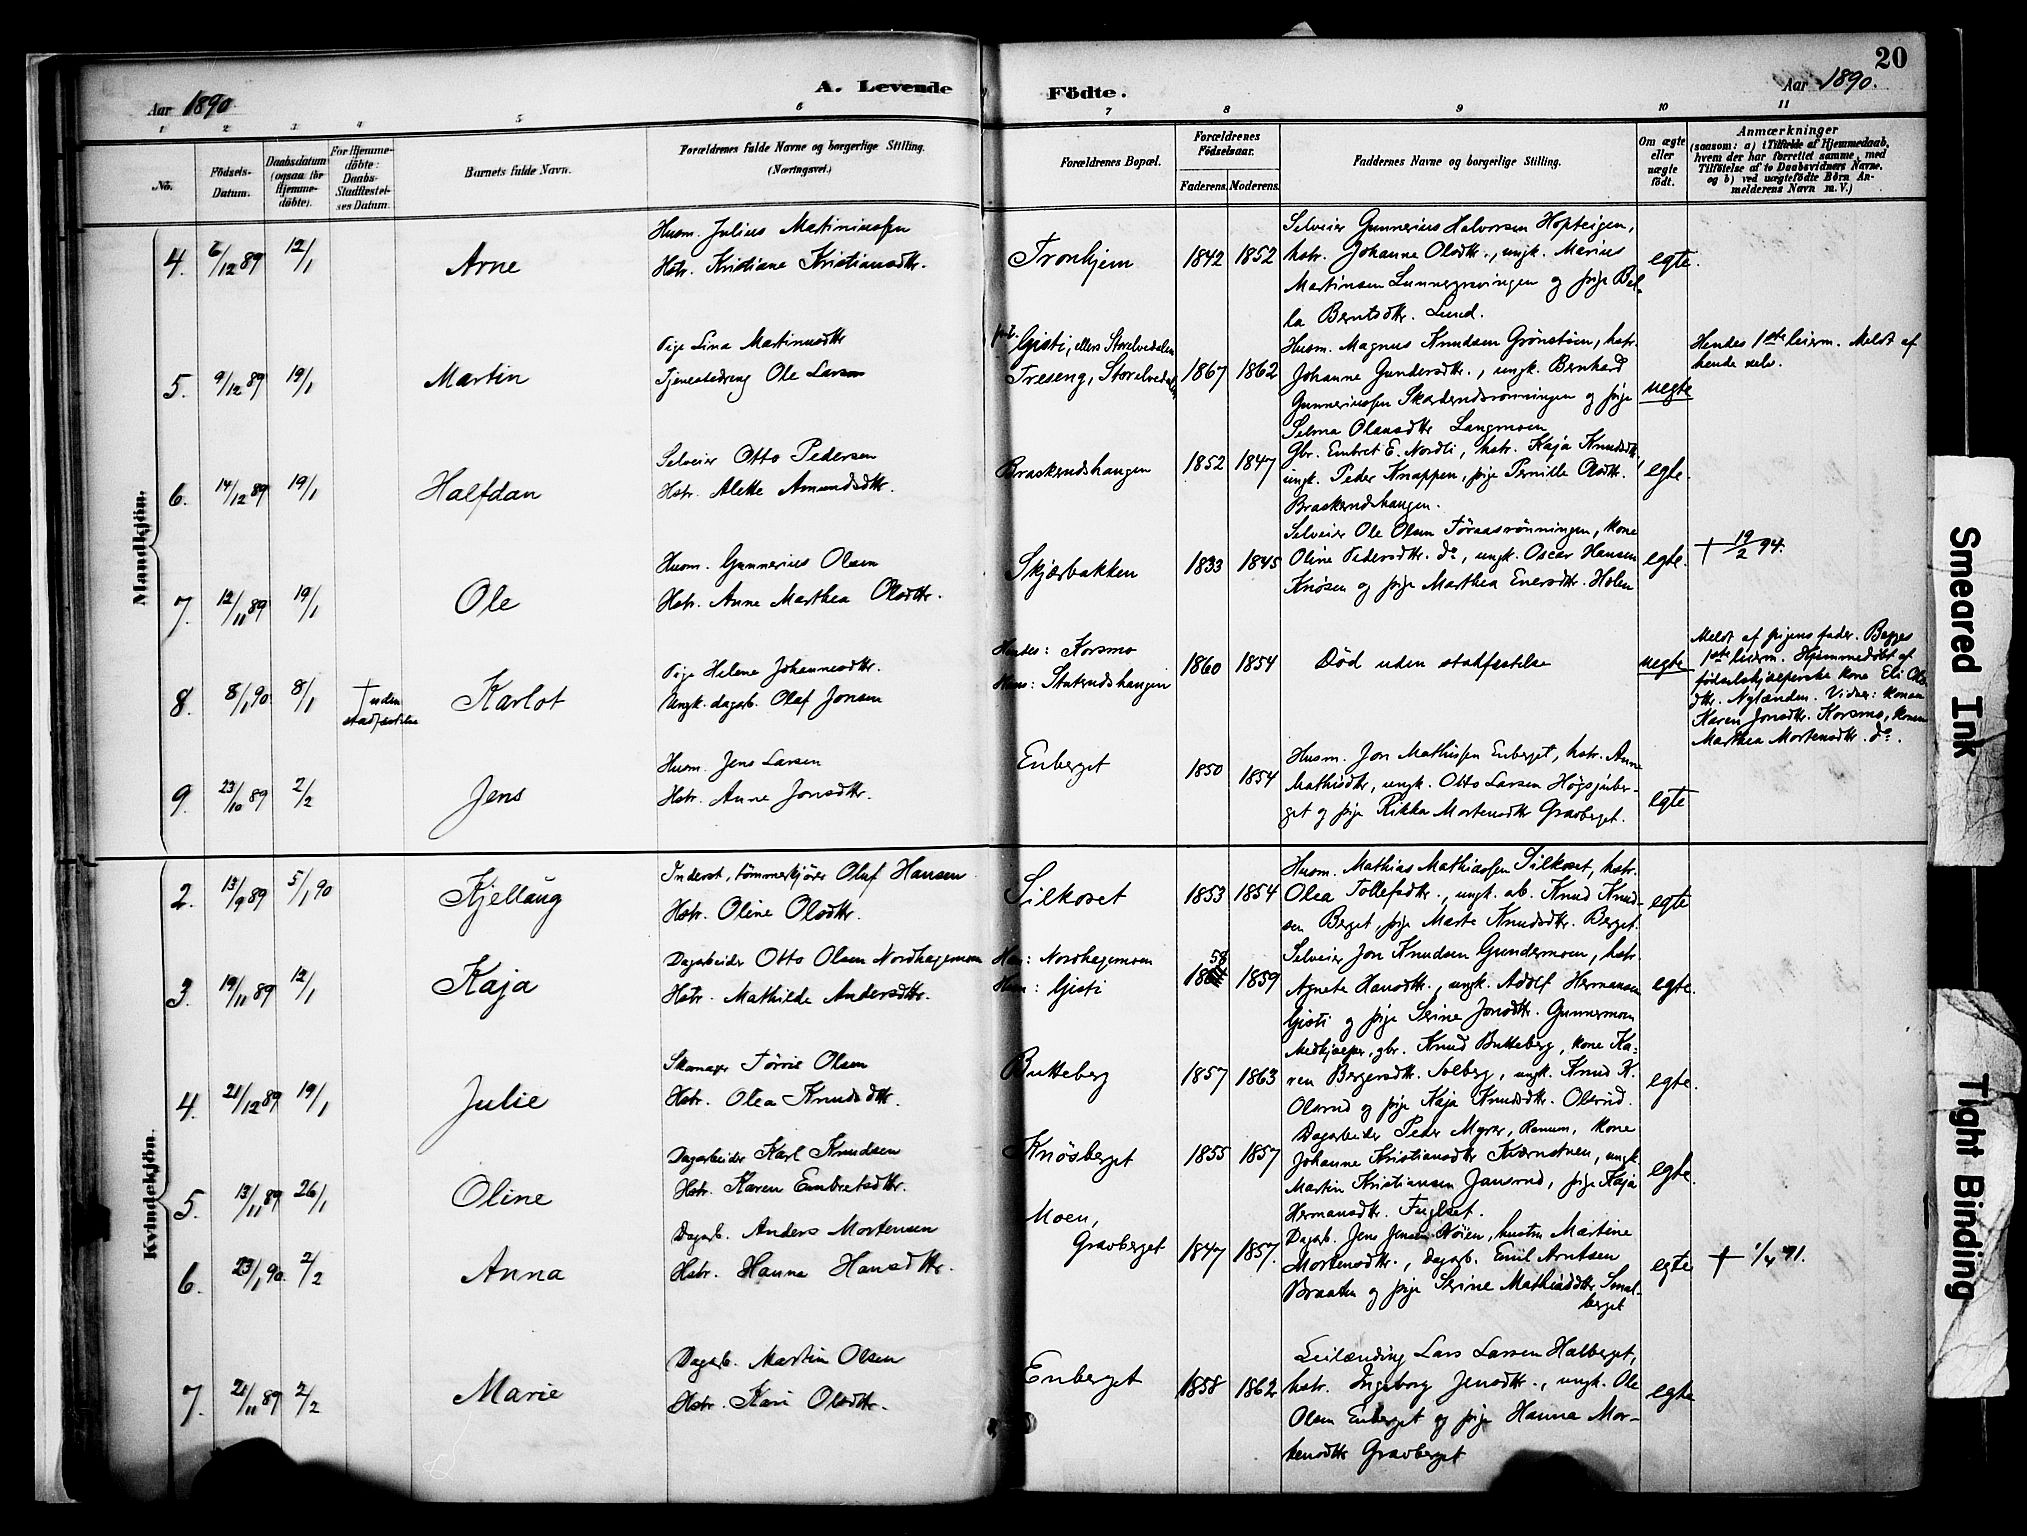 20
A. Levende Födte.
Aar 1890
Aar 1890.
1 2 3 4 5 6 7 8 9 10 11
No.
Födsels-
Datum.
Daabsdatum
(ogsaa for
Hjemme-
döbte).
For Hjemme-
döbte:
Daabs-
Stadfæstel-
ses Datum.
Barnets fulde Navn.
Forældrenes fulde Navne og borgerlige Stilling.
(Næringsvei.)
Forældrenes Bopæl.
Forældrenes
Födselsaar.
Faderens. Moderens.
Faddernes Navne og borgerlige Stilling.
Om ægte
eller
uægte
født.
Anmærkninger
(saasom: a) i Tilfælde af Hjemmedaab,
hvem der har forrettet samme, med
Tilföielse af to Daabsvidners Navne,
og b) ved uægtefödte Börn An-
melderens Navn m. V.)
Mandkjön.
4. 6/12 89 12/1 Arne
Husm. Julius Martiniussen
Hstr. Kristiane Kristiansdtr.
Tronhjem 1842 1852
Selveier Gunnerius Halvorsen Hopteigen,
hstr. Johanne Olsdtr., ungk. Marius
Martinsen Lunnegravingen og pige Bel-
la Berntsdtr. Lund.
egte.
5. 9/12 89 19/1 Martin
Pige Lina Martinusdtr
Tjenestedreng Ole Larsen
Gjisti, ellers Storelvedalen
Treseng, Storelvedalen 1867 1862
Husm. Magnus Knudsen Grønstøen, hstr.
Johanne Gundersdtr., ungk. Bernhard
Gunneriussen Skaderudsrønningen og pige
Selma Olausdtr Langmoen
uegte
Hendes 1ste leierm. Meldt af
hende selv.
6. 14/12 89 19/1 Halfdan
Selveier Otto Pedersen
Hstr. Alette Amundsdtr.
Braskerudshangen 1852 1847
Gbr. Embret E. Nordli, hstr. Kaja Knudsdtr,
ungk. Peder Knappen, pige Pernille Olsdtr.
Braskerudshaugen.
egte.
7. 12/11 89 19/1 Ole
Husm. Gunnerius Olsen
Hstr. Anne Marthea Olsdtr.
Skjærbakken 1833 1845
Selveier Ole Olsen Føraasrønningen, kone
Oline Pedersdtr. do, ungk. Oscar Hansen
Knøsen og pige Marthea Enersdtr. Holen
egte.
† 19/2 94.
8. 8/1 90 8/1 † uden
stadfæstelse
Karlot
Pige Helene Johannesdtr.
Ungk. dagarb. Olaf Jonsen
Hendes: Korsmo
Hans: Staterudshangen 1860 1854
Død uden stadfæstelse
uegte
Meldt af pigens fader. Begges
1ste leierm. Hjemmedøbt af
fødselshjælperske kone Eli Ols-
dtr. Nylænden. Vidner: konen
Karen Jonsdtr. Korsmo, konen
Marthea Mortensdtr. do.
9. 23/10 89 2/2 Jens
Husm. Jens Larsen
Hstr. Anne Jonsdtr.
Enberget 1850 1854
Husm. Jon Mathissen Enberget, hstr. Anne
Mathisdtr, ungk. Otto Larsen Høgsjøber-
get og pige Rikka Mortensdtr Gravberget.
egte
Kvindekjön.
2. 13/9 89 5/1 90 Kjellaug
Inderst, tømmerkjører Oluf Hansen
Hstr. Oline Olsdtr.
Silkoset 1853 1854
Husm. Mathias Mathiassen Silkoset, hstr.
Olea Tollefsdtr., ungk. arb. Knud Knud-
sen Berget, pige Marte Knudsdtr. Berget.
egte
3. 19/11 89 12/1 Kaja
Dagarbeider Otto Olsen Nordhagemoen
Hstr. Mathilde Andersdtr.
Han: Nordhagemoen
Hun: Gjisti 58 1859
Selveier Jon Knudsen Gundermoen, hstr.
Agnete Hansdtr., ungk. Adolf Hermansen
Gjisti og pige Serine Jonsdtr. Gunnermoen
egte.
4. 21/12 89 19/1 Julie
Skomager Tørrie Olsen
Hstr. Olea Knudsdtr.
Butteberg 1857 1863
Medhjælper, gbr. Knud Butteberg, kone Ka-
ren Bergersdtr. Solberg, ungk. Knud K.
Olsrud og pige Kaja Knudsdtr. Olsrud.
egte.
5. 13/11 89 26/1 Oline
Dagarbeider Karl Knudsen
Hstr. Karen Embretsdtr.
Knøsberget 1855 1857
Dagarbeider Peder Myrer, Ranum, kone
Johanne Kristiansdtr Kværnstuen, ungk
Martin Kristiansen Jansrud, pige Kaja
Hermansdtr. Fuglset.
egte.
6. 23/1 90. 2/2 Anna
Dagarb. Anders Mortensen
Hstr. Hanna Hansdtr.
Moen,
Gravberget 1847 1857.
Dagarb. Jens Jensen Køien, hustru Martine
Mortensdtr., Dagarb. Emil Arntsen
Braaten og pige Serine Mathiasdtr Smal-
berget
egte
† 1/4 91.
7. 21/11 89 2/2 Marie
Dagarb. Martin Olsen
Hstr. Kari Olsdtr.
Enberget 1858 1862
Leilænding Lars Larsen Halberget,
hstr. Ingeborg Jensdtr., ungk. Ole
Olsen Enberget og pige Hanna Mor-
tensdtr Gravberget
egte
Smeared Ink
Tight Binding